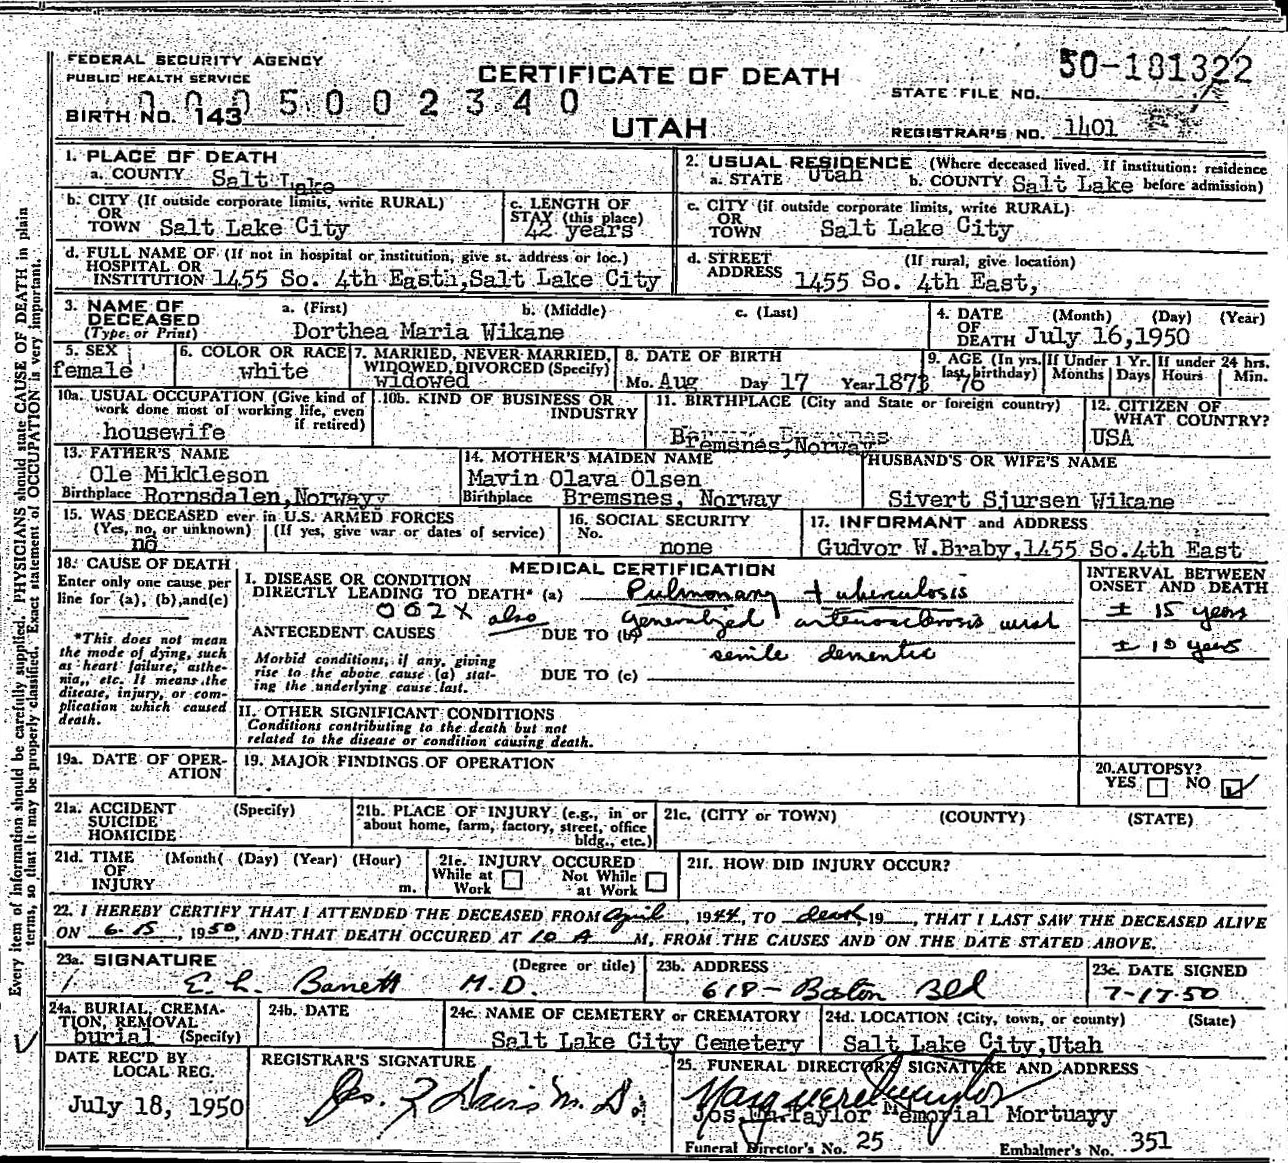 FEDERAL SECURITY AGENCY
PUBLIC HEALTH SERVICE
CERTIFICATE OF DEATH
50-181322
STATE FILE NO.
0005002340
BIRTH NO. 143
UTAH
REGISTRAR'S NO. 1401
1. PLACE OF DEATH
a. COUNTY Salt Lake
2. USUAL RESIDENCE (Where deceased lived. If institution: residence before admission)
a. STATE Utah b. COUNTY Salt Lake
b. CITY (If outside corporate limits, write RURAL)
OR
TOWN Salt Lake City
c. LENGTH OF
STAY (this place)
42 years
c. CITY (if outside corporate limits, write RURAL)
OR
TOWN Salt Lake City
d. FULL NAME OF (If not in hospital or institution, give st. address or loc.)
HOSPITAL OR
INSTITUTION 1455 So. 4th Easth, Salt Lake City
d. STREET (If rural, give location)
ADDRESS 1455 So. 4th East,
3. NAME OF DECEASED
(Type or Print)
a. (First) b. (Middle) c. (Last)
Dorthea Maria Wikane
4. DATE OF DEATH (Month) (Day) (Year)
July 16,1950
5. SEX
female
6. COLOR OR RACE
white
7. MARRIED, NEVER MARRIED,
WIDOWED, DIVORCED (Specify)
widowed
8. DATE OF BIRTH
Mo. Aug Day 17 Year 1873
9. AGE (In yrs. last birthday) 76
If Under 1 Yr. Months Days
If under 24 hrs. Hours Min.
10a. USUAL OCCUPATION (Give kind of
work done most of working life, even
if retired)
housewife
10b. KIND OF BUSINESS OR
INDUSTRY
11. BIRTHPLACE (City and State or foreign country)
Bremsnes, Norway
12. CITIZEN OF
WHAT COUNTRY?
USA
13. FATHER'S NAME
Ole Mikkleson
Birthplace Rornsdalen, Norwayy
14. MOTHER'S MAIDEN NAME
Mavin Olava Olsen
Birthplace Bremsnes, Norway
HUSBAND'S OR WIFE'S NAME
Sivert Sjursen Wikane
15. WAS DECEASED ever in U.S. ARMED FORCES
(Yes, no, or unknown) (If yes, give war or dates of service)
no
16. SOCIAL SECURITY
No.
none
17. INFORMANT and ADDRESS
Gudvor W.Braby, 1455 So.4th East
18. CAUSE OF DEATH
Enter only one cause per
line for (a), (b), and (c)
*This does not mean
the mode of dying, such
as heart failure, asthe-
nia, etc. It means the
disease, injury, or com-
plication which caused
death.
MEDICAL CERTIFICATION
I. DISEASE OR CONDITION
DIRECTLY LEADING TO DEATH* (a) Pulmonary tuberculosis
002X also
ANTECEDENT CAUSES DUE TO (b) generalized arteriosclerosis with
senile dementia
Morbid conditions, if any, giving
rise to the above cause (a) stat-
ing the underlying cause last.
DUE TO (c)
INTERVAL BETWEEN
ONSET AND DEATH
± 15 years
± 10 years
II. OTHER SIGNIFICANT CONDITIONS
Conditions contributing to the death but not
related to the disease or condition causing death.
19a. DATE OF OPER-
ATION
19. MAJOR FINDINGS OF OPERATION
20. AUTOPSY?
YES NO ✓
21a. ACCIDENT (Specify)
SUICIDE
HOMICIDE
21b. PLACE OF INJURY (e.g., in or
about home, farm, factory, street, office
bldg., etc.)
21c. (CITY or TOWN) (COUNTY) (STATE)
21d. TIME (Month( (Day) (Year) (Hour)
OF
INJURY m.
21e. INJURY OCCURED
While at Work Not While at Work
21f. HOW DID INJURY OCCUR?
22. I HEREBY CERTIFY THAT I ATTENDED THE DECEASED FROM April, 1944, TO death, 19 , THAT I LAST SAW THE DECEASED ALIVE
ON 6-15, 1950, AND THAT DEATH OCCURED AT 10 A M, FROM THE CAUSES AND ON THE DATE STATED ABOVE.
23a. SIGNATURE (Degree or title)
E. L. Barrett M.D.
23b. ADDRESS
618 - Boston Bld
23c. DATE SIGNED
7-17-50
24a. BURIAL, CREMA-
TION, REMOVAL
burial (Specify)
24b. DATE
24c. NAME OF CEMETERY or CREMATORY
Salt Lake City Cemetery
24d. LOCATION (City, town, or county) (State)
Salt Lake City, Utah
DATE REC'D BY
LOCAL REG.
July 18, 1950
REGISTRAR'S SIGNATURE
25. FUNERAL DIRECTOR'S SIGNATURE AND ADDRESS
Jos. Wm. Taylor Memorial Mortuayy
Funeral Director's No. 25 Embalmer's No. 351
Every item of information should be carefully supplied. PHYSICIANS should state CAUSE OF DEATH in plain
terms, so that it may be properly classified. Exact statement of OCCUPATION is very important.